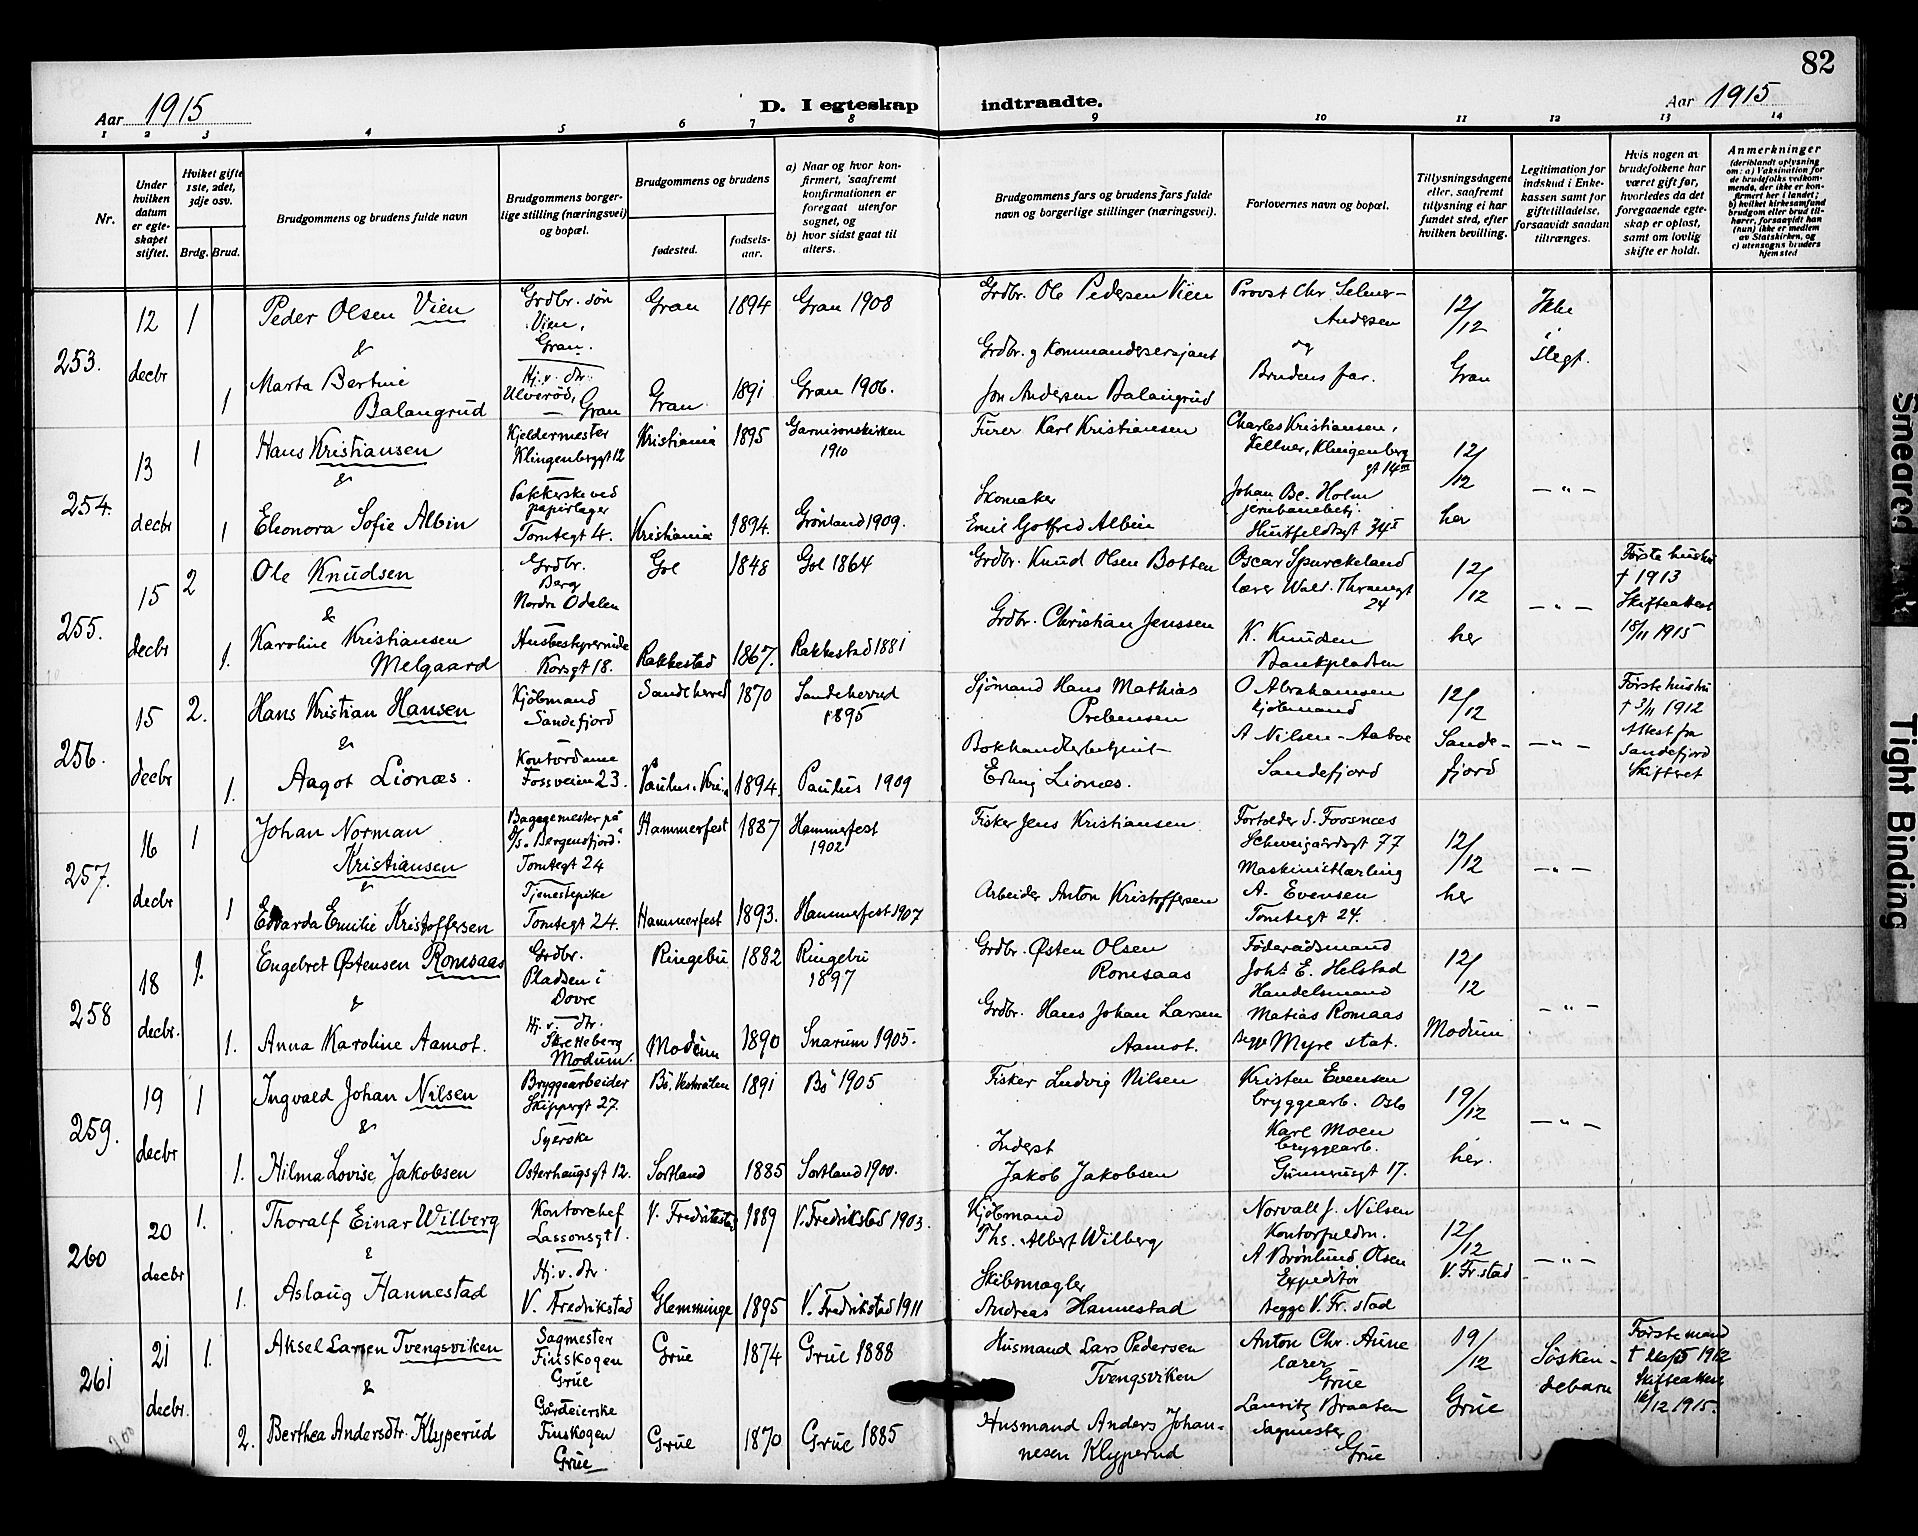 82
Aar 1915
D. I egteskap indtraadte.
Aar 1915
1 2 3 4 5 6 7 8 9 10 11 12 13 14
Nr.
Under hvilken datum er egteskapet stiftet.
Hviket gifte 1ste, 2det, 3dje osv.
Brdg. Brud.
Brudgommens og brudens fulde navn
Brudgommens borgerlige stilling (næringsvei) og bopæl.
Brudgommens og brudens
fødested.
fødselsaar.
a) Naar og hvor konfirmert, saafremt konfirmationen er foregaat utenfor sognet, og
b) hvor sidst gaat til alters.
Brudgommens fars og brudens fars fulde navn og borgerlige stillinger (næringsvei).
Forlovernes navn og bopæl.
Tillysningsdagene eller, saafremt tillysning ei har fundet sted, efter hvilken bevilling.
Legitimation for indskud i Enkekassen samt for giftetilladelse, forsaavidt saadan tiltrænges.
Hvis nogen av brudefolkene har været gift før, hvorledes da det foregaaende egteskap er opløst, samt om lovlig skifte er holdt.
Anmerkninger
(deriblandt oplysning om: a) Vaksination for de brudefolks vedkommende, der ikke er konfirmert her i landet; b) hvilket kirkesamfund brudgom eller brud tilhører, forsaavidt han (hun) ikke er medlem av Statskirken, og c) utensogns bruders hjemsted
253.
12 decbr
1
Peder Olsen Vien
&
1
Marta Bertine
Balangrud
Grdbr. søn
Vien,
Gran.
Hj. v. dtr.
Ulverød,
Gran
Gran 1894 Gran 1908
Gran 1891 Gran 1906.
Grdbr. Ole Pedersen Vien
Grdbr. og Kommandersersjant
Jon Andersen Balangrud
Provst Chr Selmer-
Andersen
og
Brudens far.
12/12
Gran
Ikke
i
slegt.
254.
13 decbr
1
Hans Kristiansen
&
1
Eleonora Sofie Albin
Kjeldermester
Klingenberggt 12
Pakkerske ved
papirlager
Tomtegt 4.
Kristiania 1895 Garnisonskirken
1910
Kristiania 1894. Grønland 1909.
Furer Karl Kristiansen
Skomaker
Emil Gotfred Albin
Charles Kristiansen,
Kellner, Klingenberg
gt 14 III
Johan Be. Holm
jernbanebetj.
Huitfeldtsgt 34 I
12/12
her
— " —
255.
15 decbr
2
Ole Knudsen
&
1.
Karoline Kristiansen
Melgaard
Grdbr.
Berg
Nordre Odalen
Husbestyrerinde
Korsgt 18.
Gol 1848 Gol 1864
Rakkestad 1867. Rakkestad 1881
Grdbr. Knud Olsen Botten
Grdbr. Christian Jenssen
Oscar Spurckeland
lærer Wald. Thranegt
24
K. Knudsen
Bankpladsen
12/12
her
— " —
Første hustru
† 1913
Skifteattest
18/11 1915
256.
15 decbr
2.
Hans Kristian Hansen
&
1.
Aagot Lionæs.
Kjøbmand
Sandefjord
Kontordame
Fossveien 23.
Sandeherred 1870 Sandeherred
1895
Paulus. Kr.a 1894. Paulus 1909
Sjömand Hans Mathias
Prebensen
Bokhandlerbetjent
Erling Lionæs.
O Abrahamsen
kjøbmand
A Nilsen-Aaboe
Sandefjord
12/12
Sande-
fjord
— " —
Første hustru
† 3/11 1912
Attest fra
Sandefjord
Skifteret
257.
16 decbr
1
Johan Norman
Kristiansen
&
1
Edvarda Emilie Kristoffersen
Bagagemester på
D/s „Bergensfjord“
Tomtegt 24
Tjenestepike
Tomtegt 24.
Hammerfest 1887 Hammerfest
1902
Hammerfest 1893. Hammerfest 1907
Fisker Jens Kristiansen
Arbeider Anton Kristoffersen
Forhelder S. Foosnæs
Schweigaardsgt 77
Maskinistlærling
A. Evensen
Tomtegt 24.
12/12
her
— " —
258
18 decbr.
1.
Engebret Østensen Romsaas
&
1.
Anna Karoline Aamot.
Grdbr.
Pladsen i
Dovre
Hj. v. dtr.
Skretteberg
Modum.
Ringebu 1882 Ringebu
1897
Modum 1890 Snarum 1905.
Grdbr. Østen Olsen
Romsaas
Grdbr. Hans Johan Larsen
Aamot.
Føderaadsmand
Johs E. Helstad
Handelsmand
Matias Romsaas
begge Myre stat.
12/12
Modum
— " —
259.
19 decbr
1
Ingvald Johan Nilsen
&
1.
Hilma Lovise Jakobsen
Bryggearbeider
Skippergt 27.
Syerske
Osterhaugsgt 12.
Bø. Vesteraalen 1891 Bø 1905
Sortland 1885 Sortland 1900.
Fisker Ludvig Nilsen
Inderst
Jakob Jakobsen
Kristen Evensen
bryggearb. Oslo
Karl Moen
bryggearb.
Gunnerusgt 17.
19/12
her.
— " —
260
20 decbr
1.
Thoralf Einar Wilberg
&
1.
Aslaug Hannestad
Kontorchef
Lassonsgt 1.
Hj. v. dtr.
V. Fredrikstad
V. Fredrikstad 1889 V. Fredrikstad 1903.
Glemminge 1895 V. Fredrikstad 1911
Kjøbmand
Ths. Albert Wilberg
Skibsmægler
Andreas Hannestad
Norvall J. Nilsen
Kontorfuldm.
A Brønlund Olsen
Expeditør
begge V. Fr. stad
12/12
V. Fr. stad
— " —
261
21 decbr.
1.
Aksel Larsen Tvengsviken
&
2.
Berthea Andersdtr. Klyperud
Sagmester
Finskogen
Grue
Gårdeierske
Finskogen
Grue
Grue 1874 Grue 1888
Grue 1870 Grue 1885
Husmand Lars Pedersen
Tvengsviken
Husmand Anders Johan-
nesen Klyperud
Anton Chr. Aune
lærer
Grue
Lauritz Braaten
Sagmester
Grue
19/12
Grue
Søsken-
debarn
Første mand
† 26/5 1912
Skifteattest
16/12 1915.
200
Smeared
Tight Binding